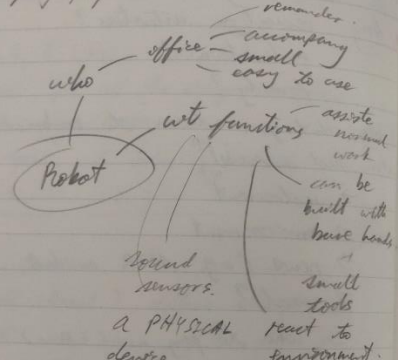 remember.
accompany
office
small
easy to use
who
wt functions
assiste
normal
work
Robot
can be
built with
bare hands
+
small
tools
sound
sensors.
a PHYSICAL
device
react to
environment.